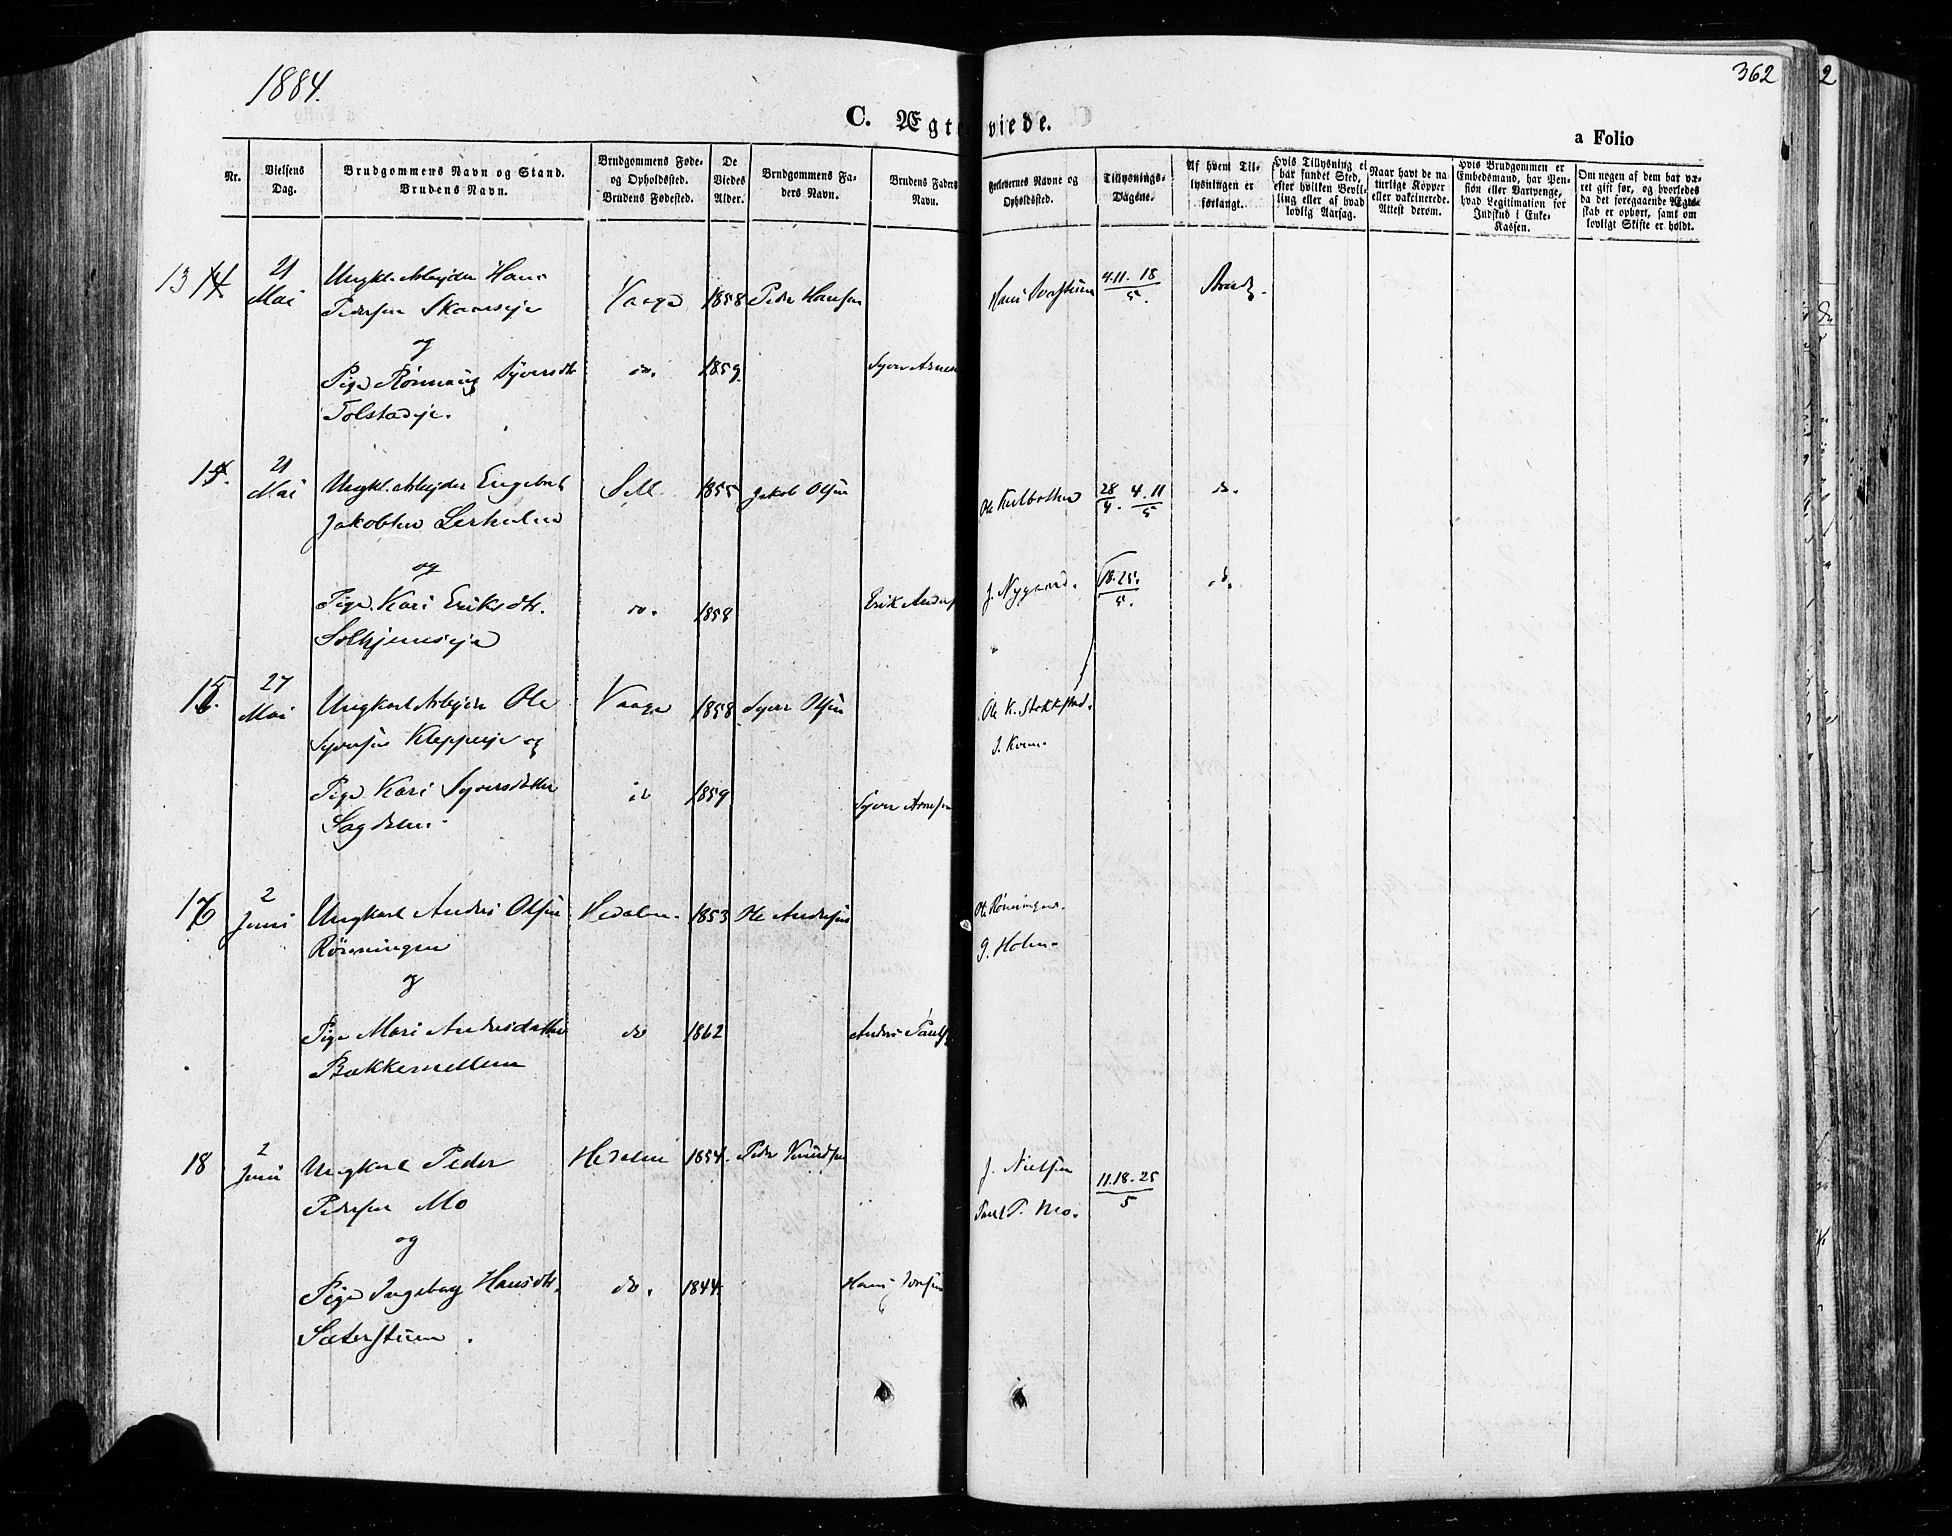 1884.
362
2
C. Ægteviede.
a Folio
Nr.
Vielsens Dag.
Brudgommens Navn og Stand. Brudens Navn.
Brudgommens Føde- og Opholdssted. Brudens Fødested.
De Viedes Alder.
Brudgommens Faders Navn.
Brudens Faders Navn.
Forlovernes Navne og Opholdssted.
Tillysnings-Dagene.
Af hvem Tillysningen er forlangt.
Hvis Tillysning ei har fundet Sted, efter hvilken Bevilling eller af hvad lovlig Aarsag.
Naar havt de naturlige Kopper eller vakcinerede. Attest derom.
Hvis Brudgommen er Embedsmand, har Pension eller Vartpenge, hvad Legitimation for Indskud i Enke-Kassen.
Om nogen af dem har været gift før, og hvorledes da det foregaaende Ægteskab er ophørt, samt om lovligt Skifte er holdt.
13 14 21 Mai Ungkl. Arbejder Hans Vaage 1858 Peder Hansen 4. 11. 18
Pedersen Skaarseje 5.
og
Pige Rønnaug Syversdtr do. 1859. Syver Arnesen
Tolstadeje.
21 Mai Ungkl. Arbejder Engebret Sell 1855 Jakob Olsen 28 4. 11 do.
Jakobsen Lerholen 4. 5
og
Pige Kari Eriksdtr. do. 1858 Erik Anders J. Nygaard. 18. 25. do.
Solhjemseje 5.
27 Mai Ungkarl Arbejder Ole Vaage 1858 Syver Olsen Ole K. Stokstad.
Syversen Kleppeje og
Pige Kari Syversdatter do 1859 Syver Arnesen
Sagdalen.
2 Juni Ungkarl Anders Olsen Hedalen. 1853 Ole Andersen Ole Rønningen.
Rønningen J. Holen
og
Pige Mari Andersdatter do 1862 Anders Paulsen
Bakkemellem
18 2 Juni Ungkarl Peder Hedalen 1854. Peder Knudsen J. Nielsen 11. 18. 25
Pedersen Mo Paul P. Mo. 5
og
Pige Ingeborg Hansdtr. do. 1844. Hans Iversen
Sæterstuen.